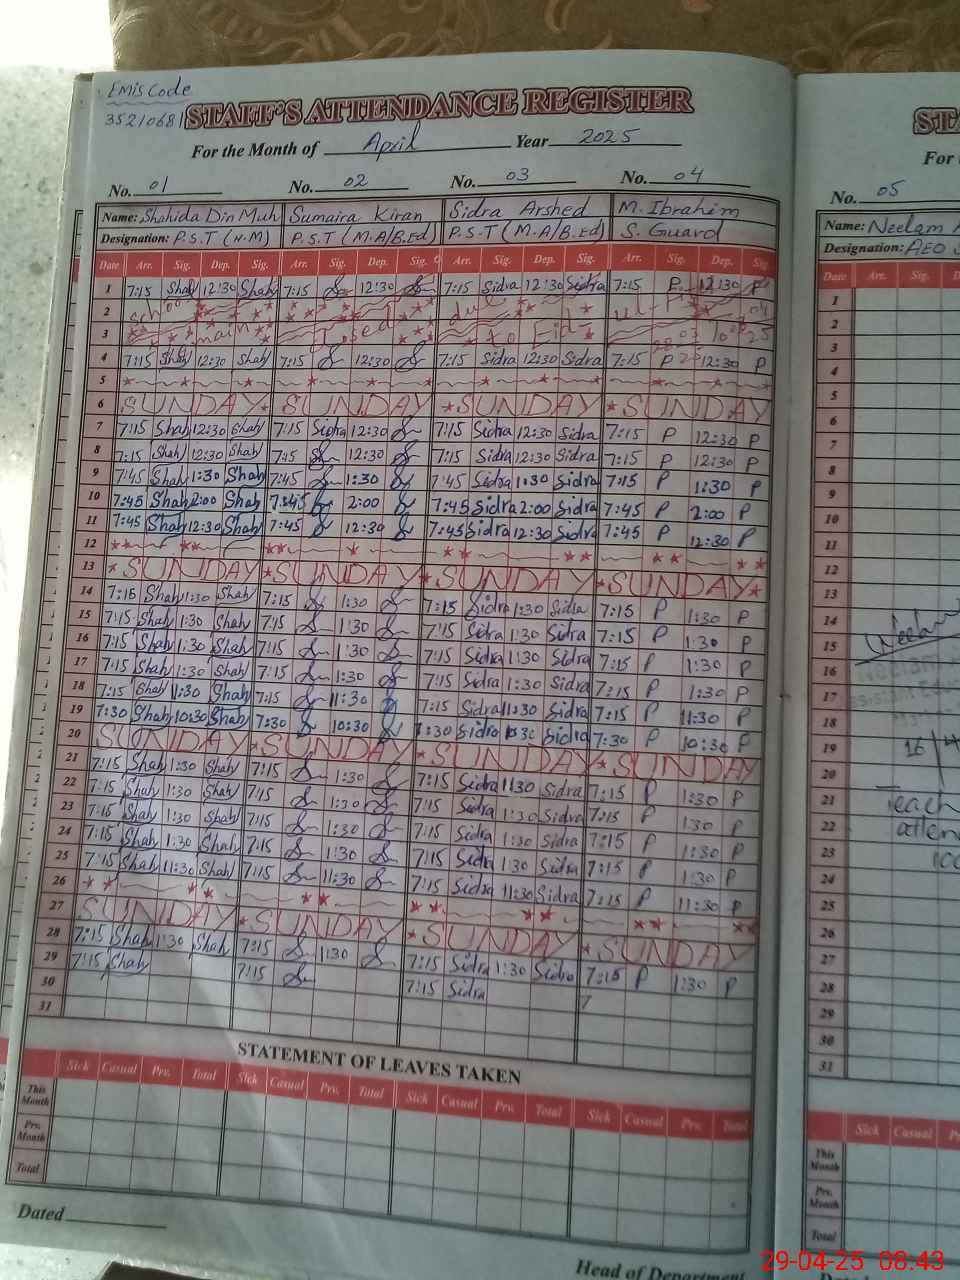 Emis Code
35210681 STAFF'S ATTENDANCE REGISTER
For the Month of April Year 2025
No. 01 No. 02 No. 03 No. 04
Name: Shahida Din Muh Sumaira Kiran Sidra Arshed M. Ibrahim
Designation: P.S.T (H.M) P.S.T (M.A/B.Ed) P.S.T (M.A/B.Ed) S. Guard
Date Arr. Sig. Dep. Sig. Arr. Sig. Dep. Sig. Arr. Sig. Dep. Sig. Arr. Sig. Dep. Sig.
1 7:15 Shah 12:30 Shah 7:15 12:30 7:15 Sidra 12:30 Sidra 7:15 P 12:30 P
2 due
3 to Eid
4 7:15 Shah 12:30 Shah 7:15 12:30 7:15 Sidra 12:30 Sidra 7:15 P 12:30 P
5
6 SUNDAY SUNDAY SUNDAY SUNDAY
7 7:15 Shah 12:30 Shah 7:15 Sidra 12:30 7:15 Sidra 12:30 Sidra 7:15 P 12:30 P
8 7:15 Shah 12:30 Shah 7:45 12:30 7:15 Sidra 12:30 Sidra 7:15 P 12:30 P
9 7:45 Shah 1:30 Shah 7:45 1:30 7:45 Sidra 1:30 Sidra 7:15 P 1:30 P
10 7:45 Shah 2:00 Shah 7:45 2:00 7:45 Sidra 2:00 Sidra 7:45 P 2:00 P
11 7:45 Shah 12:30 Shah 7:45 12:30 7:45 Sidra 12:30 Sidra 7:45 P 12:30 P
12
13 SUNDAY SUNDAY SUNDAY SUNDAY
14 7:15 Shah 1:30 Shah 7:15 1:30 7:15 Sidra 1:30 Sidra 7:15 P 1:30 P
15 7:15 Shah 1:30 Shah 7:15 1:30 7:15 Sidra 1:30 Sidra 7:15 P 1:30 P
16 7:15 Shah 1:30 Shah 7:15 1:30 7:15 Sidra 1:30 Sidra 7:15 P 1:30 P
17 7:15 Shah 1:30 Shah 7:15 1:30 7:15 Sidra 1:30 Sidra 7:15 P 1:30 P
18 7:15 Shah 11:30 Shah 7:15 11:30 7:15 Sidra 11:30 Sidra 7:15 P 11:30 P
19 7:30 Shah 10:30 Shah 7:30 10:30 7:30 Sidra 10:30 Sidra 7:30 P 10:30 P
20 SUNDAY SUNDAY SUNDAY SUNDAY
21 7:15 Shah 1:30 Shah 7:15 1:30 7:15 Sidra 1:30 Sidra 7:15 P 1:30 P
22 7:15 Shah 1:30 Shah 7:15 1:30 7:15 Sidra 1:30 Sidra 7:15 P 1:30 P
23 7:15 Shah 1:30 Shah 7:15 1:30 7:15 Sidra 1:30 Sidra 7:15 P 1:30 P
24 7:15 Shah 1:30 Shah 7:15 1:30 7:15 Sidra 1:30 Sidra 7:15 P 1:30 P
25 7:15 Shah 11:30 Shah 7:15 11:30 7:15 Sidra 11:30 Sidra 7:15 P 11:30 P
26
27 SUNDAY SUNDAY SUNDAY SUNDAY
28 7:15 Shah 1:30 Shah 7:15 1:30 7:15 Sidra 1:30 Sidra 7:15 P 1:30 P
29 7:15 Shah 7:15 7:15 Sidra 7
30
31
STATEMENT OF LEAVES TAKEN
Sick Casual Prv. Total Sick Casual Prv. Total Sick Casual Prv. Total Sick Casual Prv. Total
This Month
Prv. Month
Total
Dated
Head of Department
No. 05
Name: Neelam
Designation: AEO
Date Arr. Sig. Dep. Sig
1
2
3
4
5
6
7
8
9
10
11
12
13
14
15 Neelam
16
17
18
19 16/4
20
21 Teach
22 atten
23 100
24
25
26
27
28
29
30
31
Sick Casual
This Month
Prv. Month
Total
29-04-25 08:43